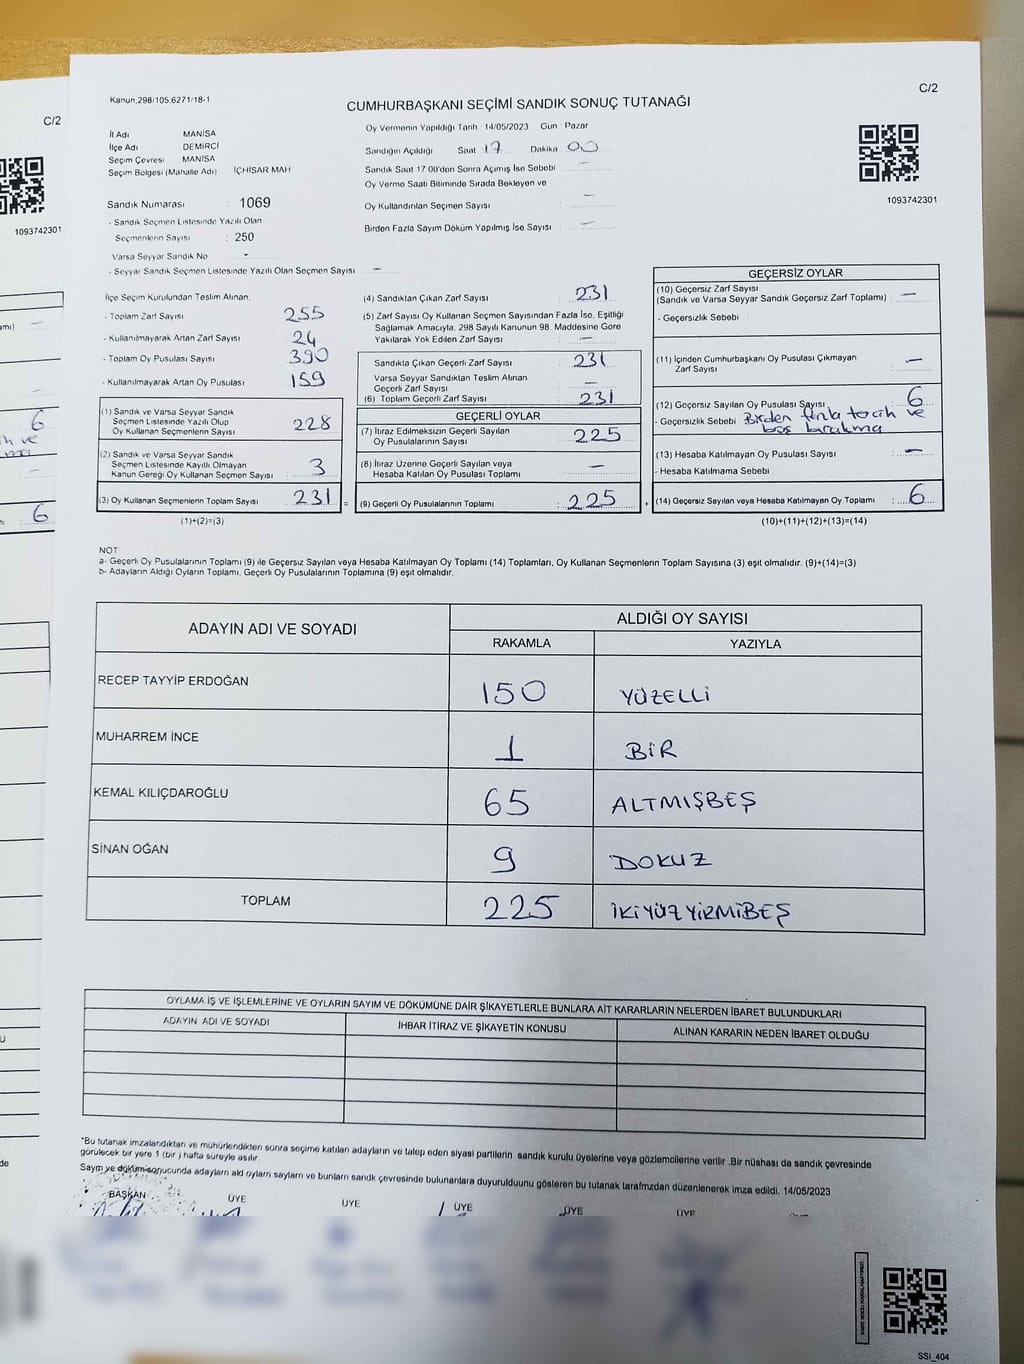 Kanun,298/105,6271/18-1
C/2
CUMHURBAŞKANI SEÇİMİ SANDIK SONUÇ TUTANAĞI
İl Adı MANİSA
İlçe Adı DEMİRCİ
Seçim Çevresi MANİSA
Seçim Bölgesi (Mahalle Adı) İÇHİSAR MAH
Sandık Numarası : 1069
- Sandık Seçmen Listesinde Yazılı Olan
Seçmenlerin Sayısı : 250
Varsa Seyyar Sandık No -
- Seyyar Sandık Seçmen Listesinde Yazılı Olan Seçmen Sayısı : —
Oy Vermenin Yapıldığı Tarih 14/05/2023 Gün : Pazar
Sandığın Açıldığı Saat 17 Dakika 00
Sandık Saat 17.00'den Sonra Açımış İse Sebebi : —
Oy Verme Saati Bitiminde Sırada Bekleyen ve
Oy Kullandırılan Seçmen Sayısı : —
Birden Fazla Sayım Döküm Yapılmış İse Sayısı : —
1093742301
İlçe Seçim Kurulundan Teslim Alınan,
- Toplam Zarf Sayısı : 255
- Kullanılmayarak Artan Zarf Sayısı : 24
- Toplam Oy Pusulası Sayısı : 390
- Kullanılmayarak Artan Oy Pusulası : 159
(1) Sandık ve Varsa Seyyar Sandık
Seçmen Listesinde Yazılı Olup
Oy Kullanan Seçmenlerin Sayısı : 228
(2) Sandık ve Varsa Seyyar Sandık
Seçmen Listesinde Kayıtlı Olmayan
Kanun Gereği Oy Kullanan Seçmen Sayısı : 3
(3) Oy Kullanan Seçmenlerin Toplam Sayısı : 231 =
(1)+(2)=(3)
(4) Sandıktan Çıkan Zarf Sayısı : 231
(5) Zarf Sayısı Oy Kullanan Seçmen Sayısından Fazla İse, Eşitliği
Sağlamak Amacıyla, 298 Sayılı Kanunun 98. Maddesine Göre
Yakılarak Yok Edilen Zarf Sayısı : —
Sandıkta Çıkan Geçerli Zarf Sayısı : 231
Varsa Seyyar Sandıktan Teslim Alınan
Geçerli Zarf Sayısı : —
(6) Toplam Geçerli Zarf Sayısı : 231
GEÇERLİ OYLAR
(7) İtiraz Edilmeksizin Geçerli Sayılan
Oy Pusulalarının Sayısı : 225
(8) İtiraz Üzerine Geçerli Sayılan veya
Hesaba Katılan Oy Pusulası Toplamı : —
(9) Geçerli Oy Pusulalarının Toplamı : 225 +
GEÇERSİZ OYLAR
(10) Geçersiz Zarf Sayısı
(Sandık ve Varsa Seyyar Sandık Geçersiz Zarf Toplamı) : —
- Geçersizlik Sebebi :
(11) İçinden Cumhurbaşkanı Oy Pusulası Çıkmayan
Zarf Sayısı : —
(12) Geçersiz Sayılan Oy Pusulası Sayısı : 6
- Geçersizlik Sebebi Birden fazla tercih ve
boş bırakma
(13) Hesaba Katılmayan Oy Pusulası Sayısı : —
- Hesaba Katılmama Sebebi
(14) Geçersiz Sayılan veya Hesaba Katılmayan Oy Toplamı : 6
(10)+(11)+(12)+(13)=(14)
NOT
a- Geçerli Oy Pusulalarının Toplamı (9) ile Geçersiz Sayılan veya Hesaba Katılmayan Oy Toplamı (14) Toplamları, Oy Kullanan Seçmenlerin Toplam Sayısına (3) eşit olmalıdır. (9)+(14)=(3)
b- Adayların Aldığı Oyların Toplamı, Geçerli Oy Pusulalarının Toplamına (9) eşit olmalıdır.
ADAYIN ADI VE SOYADI
ALDIĞI OY SAYISI
RAKAMLA YAZIYLA
RECEP TAYYİP ERDOĞAN 150 YÜZELLİ
MUHARREM İNCE 1 BİR
KEMAL KILIÇDAROĞLU 65 ALTMIŞBEŞ
SİNAN OĞAN 9 DOKUZ
TOPLAM 225 İKİYÜZYİRMİBEŞ
OYLAMA İŞ VE İŞLEMLERİNE VE OYLARIN SAYIM VE DÖKÜMÜNE DAİR ŞİKAYETLERLE BUNLARA AİT KARARLARIN NELERDEN İBARET BULUNDUKLARI
ADAYIN ADI VE SOYADI İHBAR İTİRAZ VE ŞİKAYETİN KONUSU ALINAN KARARIN NEDEN İBARET OLDUĞU
*Bu tutanak imzalandıktan ve mühürlendikten sonra seçime katılan adayların ve talep eden siyasi partilerin sandık kurulu üyelerine veya gözlemcilerine verilir .Bir nüshası da sandık çevresinde
görülecek bir yere 1 (bir ) hafta süreyle asılır.
Sayım ve döküm sonucunda adayların ald oyların sayları ve bunların sandk çevresinde bulunanlara duyurulduunu gösteren bu tutanak tarafmzdan düzenlenerek imza edildi. 14/05/2023
BAŞKAN ÜYE ÜYE ÜYE ÜYE ÜYE
SSI_404
C/2
1093742301
6
6